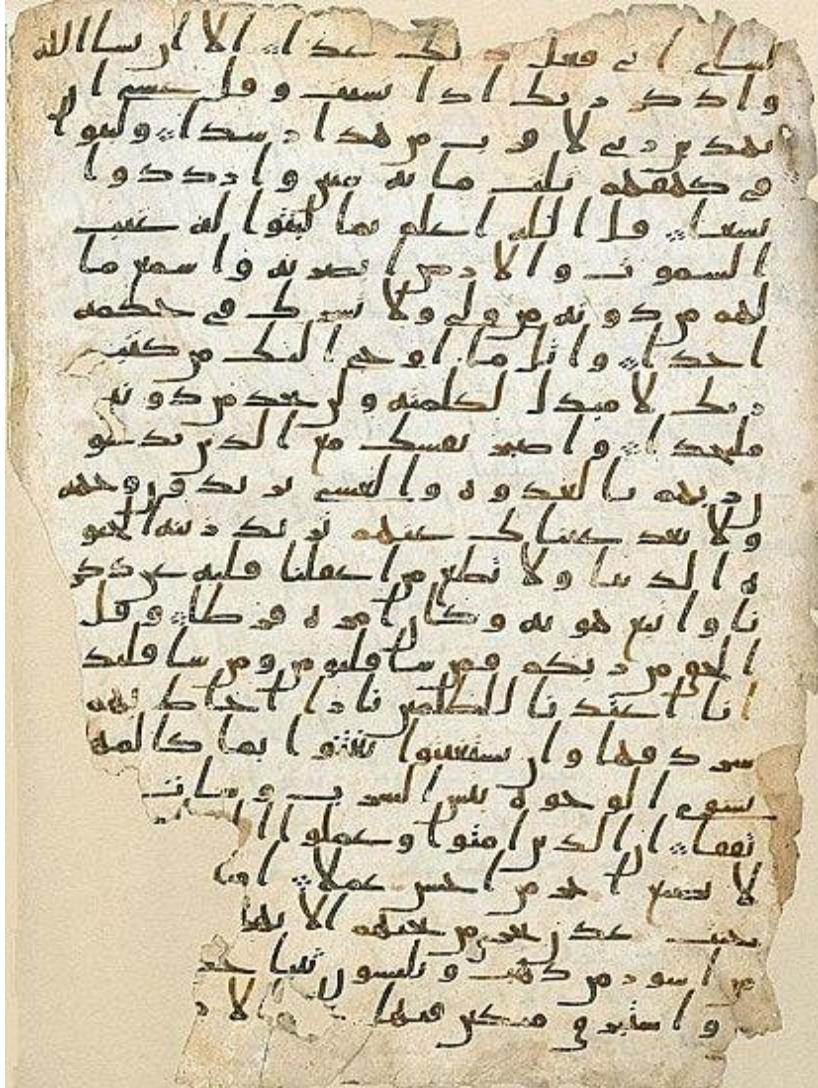 لشاي انى فعل ذلك غدا الا ان يشا الله
واذكر ربك اذا نسيت وقل عسى ان
يهدين ربى لاقرب من هذا رشدا ولبثوا
فى كهفهم ثلث مايه سنين وازددوا
تسعا قل الله اعلم بما لبثوا له غيب
السموت والارض ابصر به واسمع ما
لهم من دونه من ولى ولا يشرك فى حكمه
احدا واتل ما اوحى اليك من كتب
ربك لا مبدل لكلمته ولن تجد من دونه
ملتحدا واصبر نفسك مع الذين يدعو
ن ربهم بالغدوه والعشى يريدون وجهه
ولا تعد عيناك عنهم تريد زينه الحيو
ه الدنيا ولا تطع من اغفلنا قلبه عن ذكر
نا واتبع هويه وكان امره فرطا وقل
الحق من ربكم فمن شا فليومن ومن شا فليك
انا اعتدنا للظلمين نارا احاط بهم
سردقها وان يستغيثوا يغثوا بما كالمه
يشوى الوجوه بئس الشرب وسات
تفقا ان الذين امنوا وعملوا ا
لا نضيع اجر من احسن عملا او
جنت عدن تجرى من تحتهم الانه
من اسور من ذهب ويلبسون ثيبا خ
واستبرق متكين فيها الار